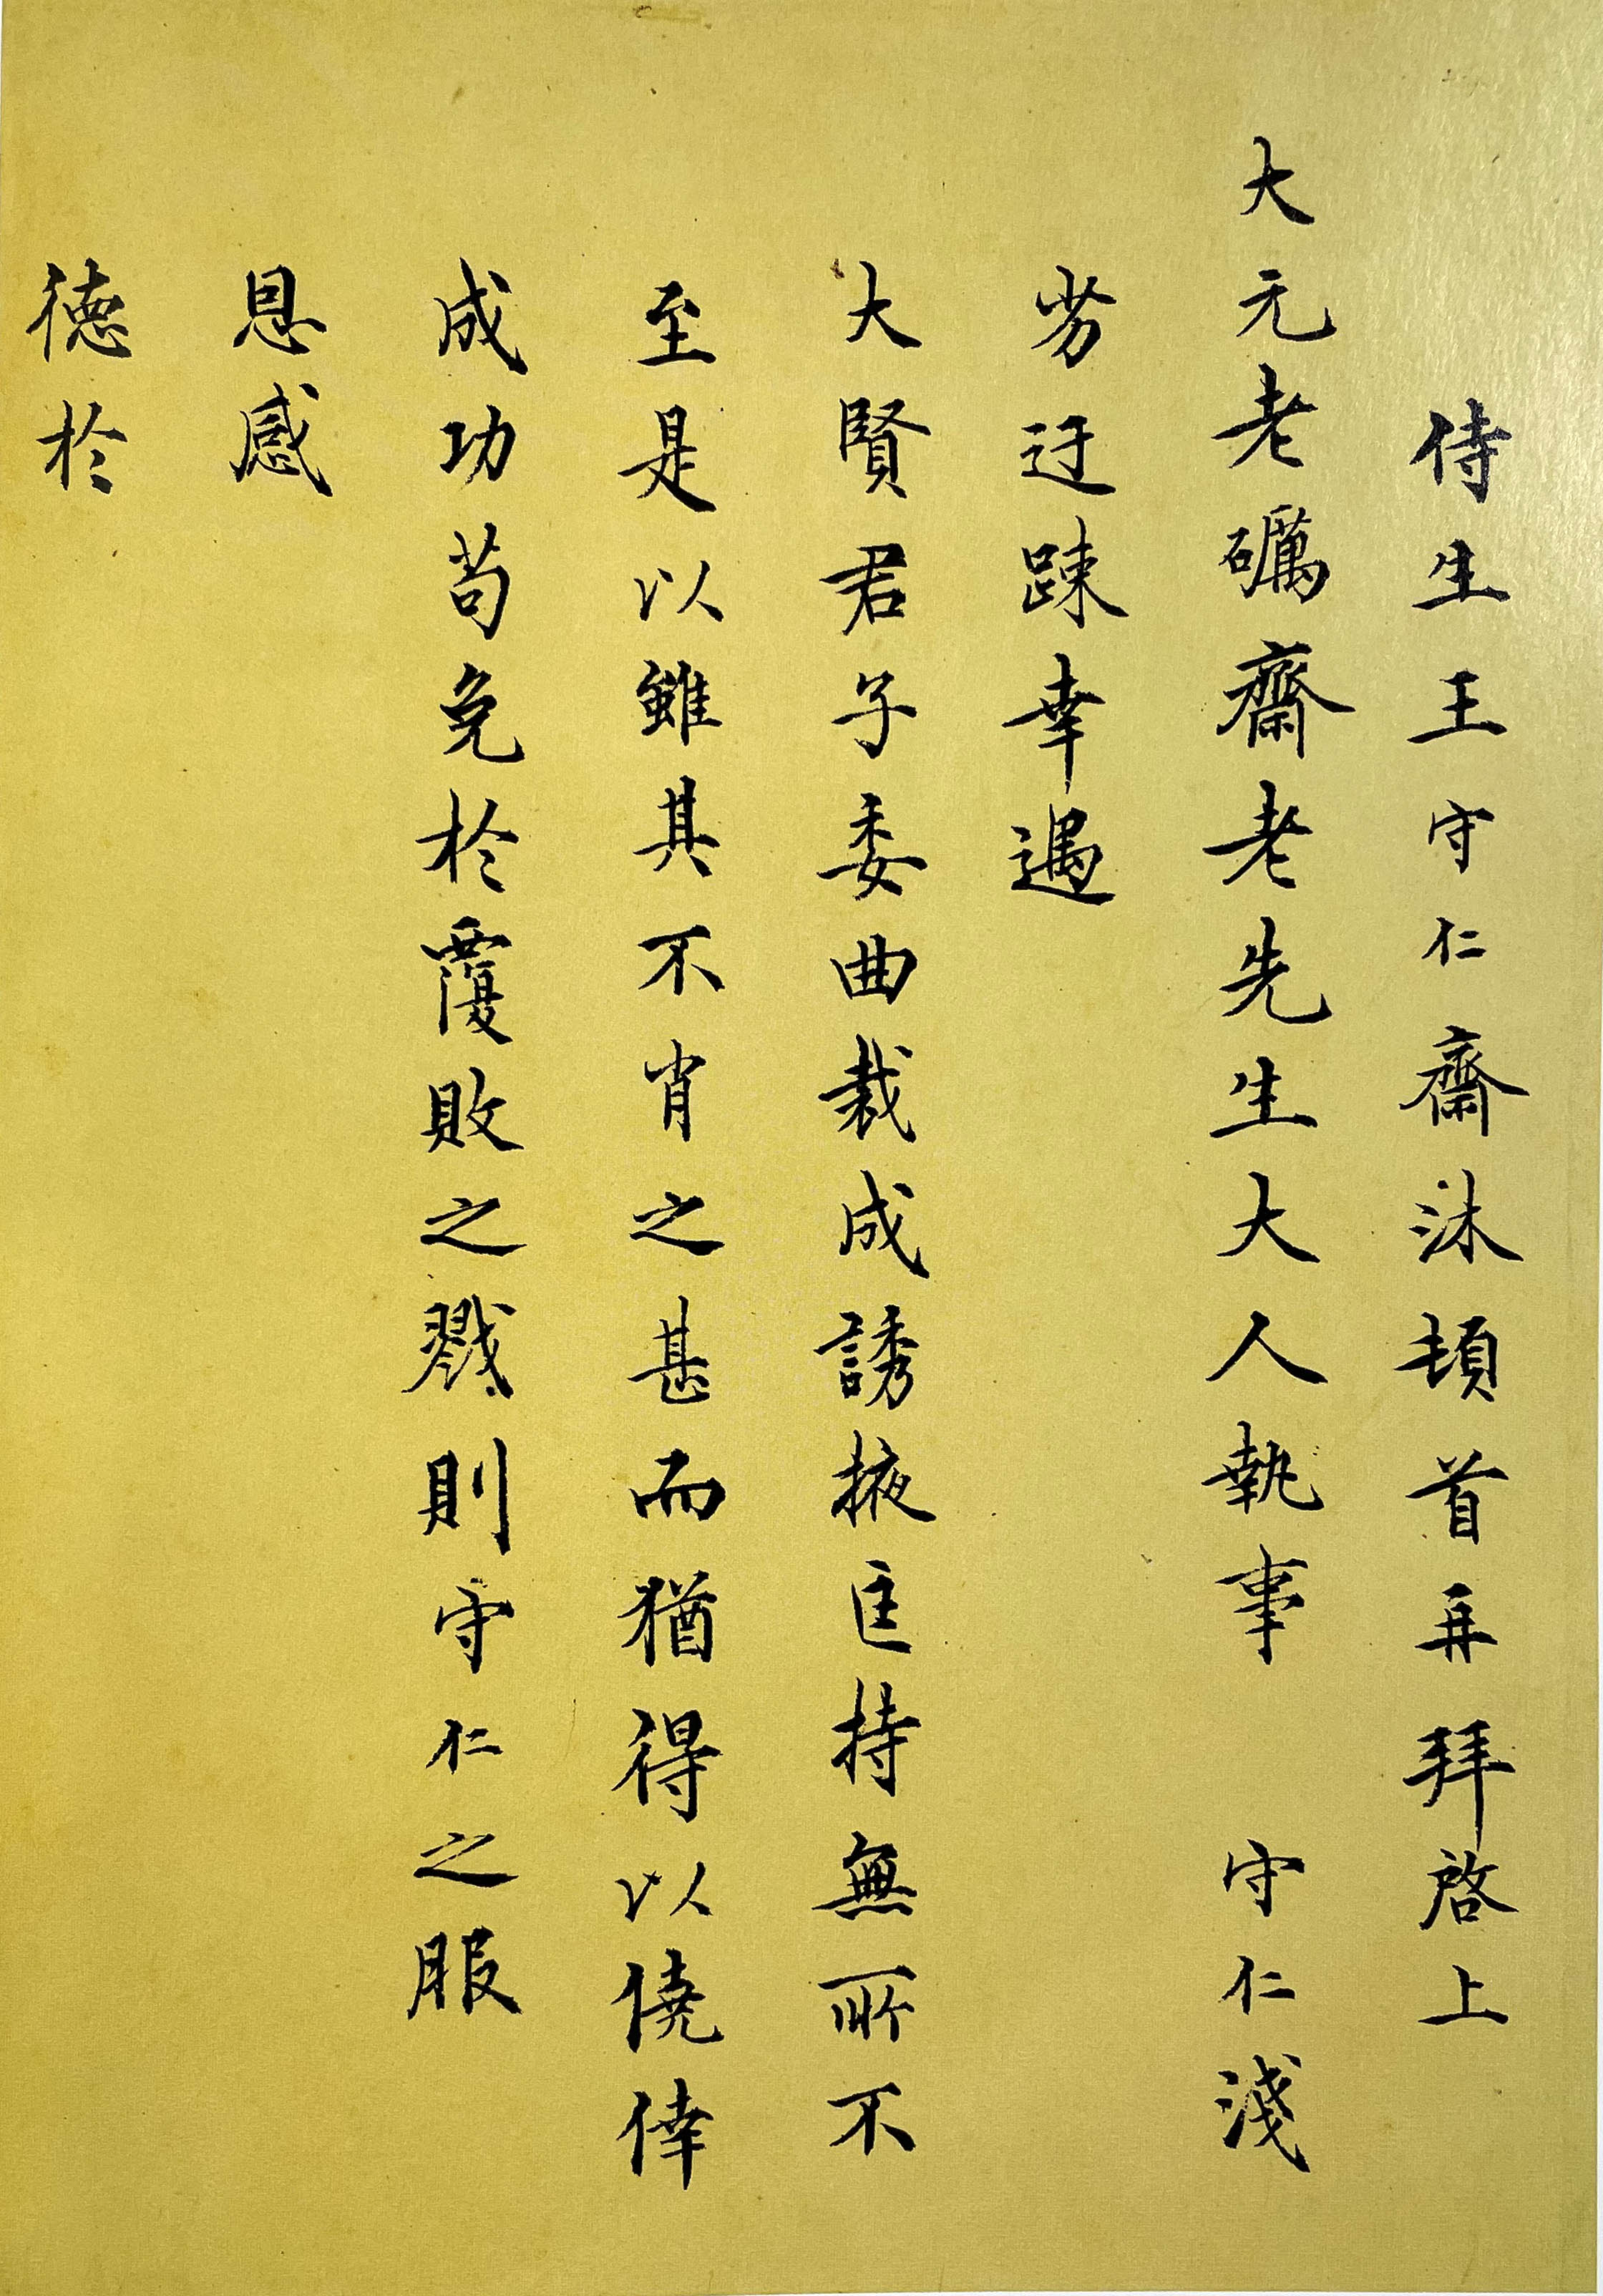 侍生王守仁齋沐頓首再拜啓上
大元老礪齋老先生大人執事　守仁淺
劣迂踈幸遇
大賢君子委曲裁成誘掖匡持無所不
至是以雖其不肖之甚而猶得以僥倖
成功苟免於覆敗之戮則守仁之服
恩感
德於